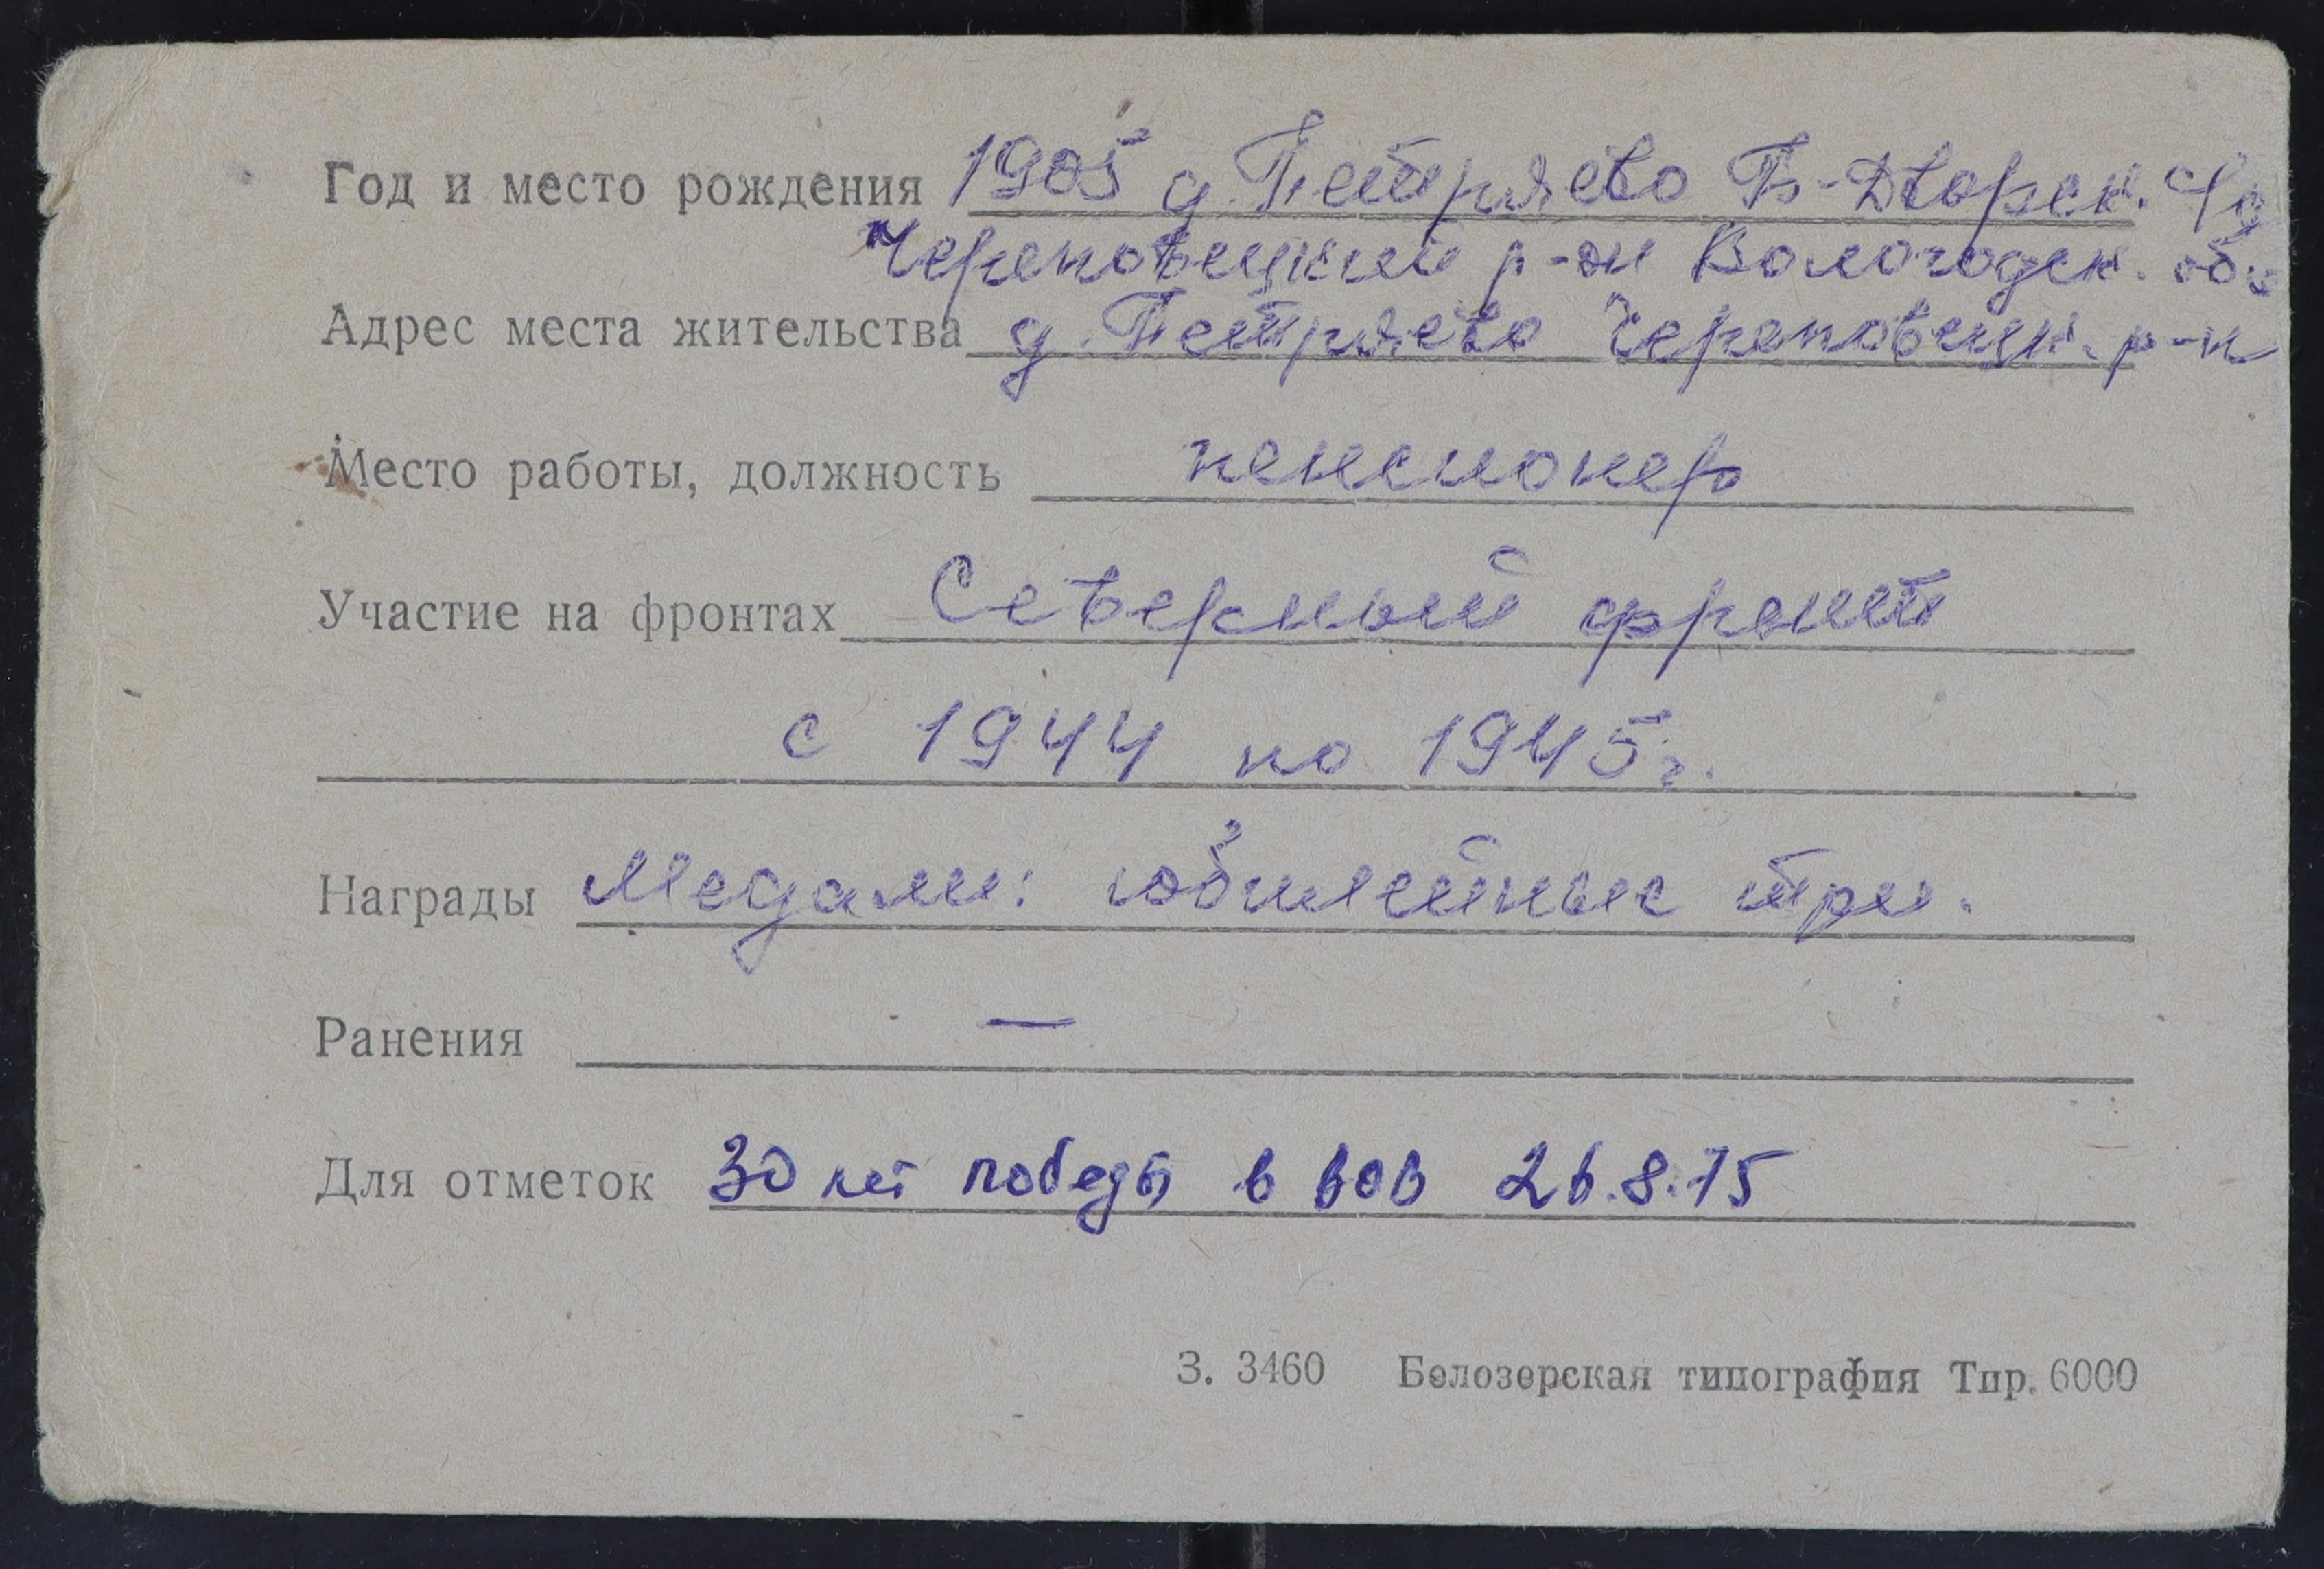 Год и место рождения 1905 д. Петряево Б-Дворск. с/с
Череповецкий р-он Вологодск. обл
Адрес места жительства д. Петряево Череповецк. р-н
Место работы, должность пенсионер
Участие на фронтах Северный фронт
с 1944 по 1945г.
Награды Медали: юбилейные три.
Ранения —
Для отметок 30 лет победы в вов 26.8.75
З. 3460 Белозерская типография Тир. 6000